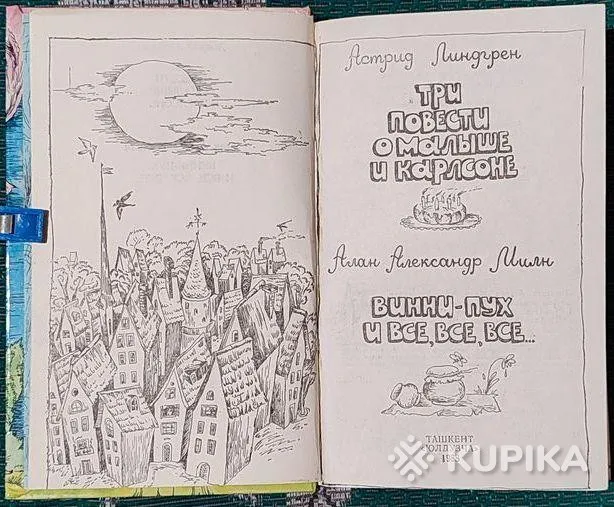 Астрид Линдгрен
ТРИ
ПОВЕСТИ
О МАЛЫШЕ
И КАРЛСОНЕ
Алан Александр Милн
ВИННИ-ПУХ
И ВСЕ, ВСЕ, ВСЕ...
ТАШКЕНТ
KUPIKA